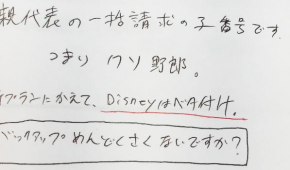 親代表の一括請求の子番号です
つまり クソ野郎。
プランにかえて、Disneyはベタ付け.
バックアップめんどくさくないですか?